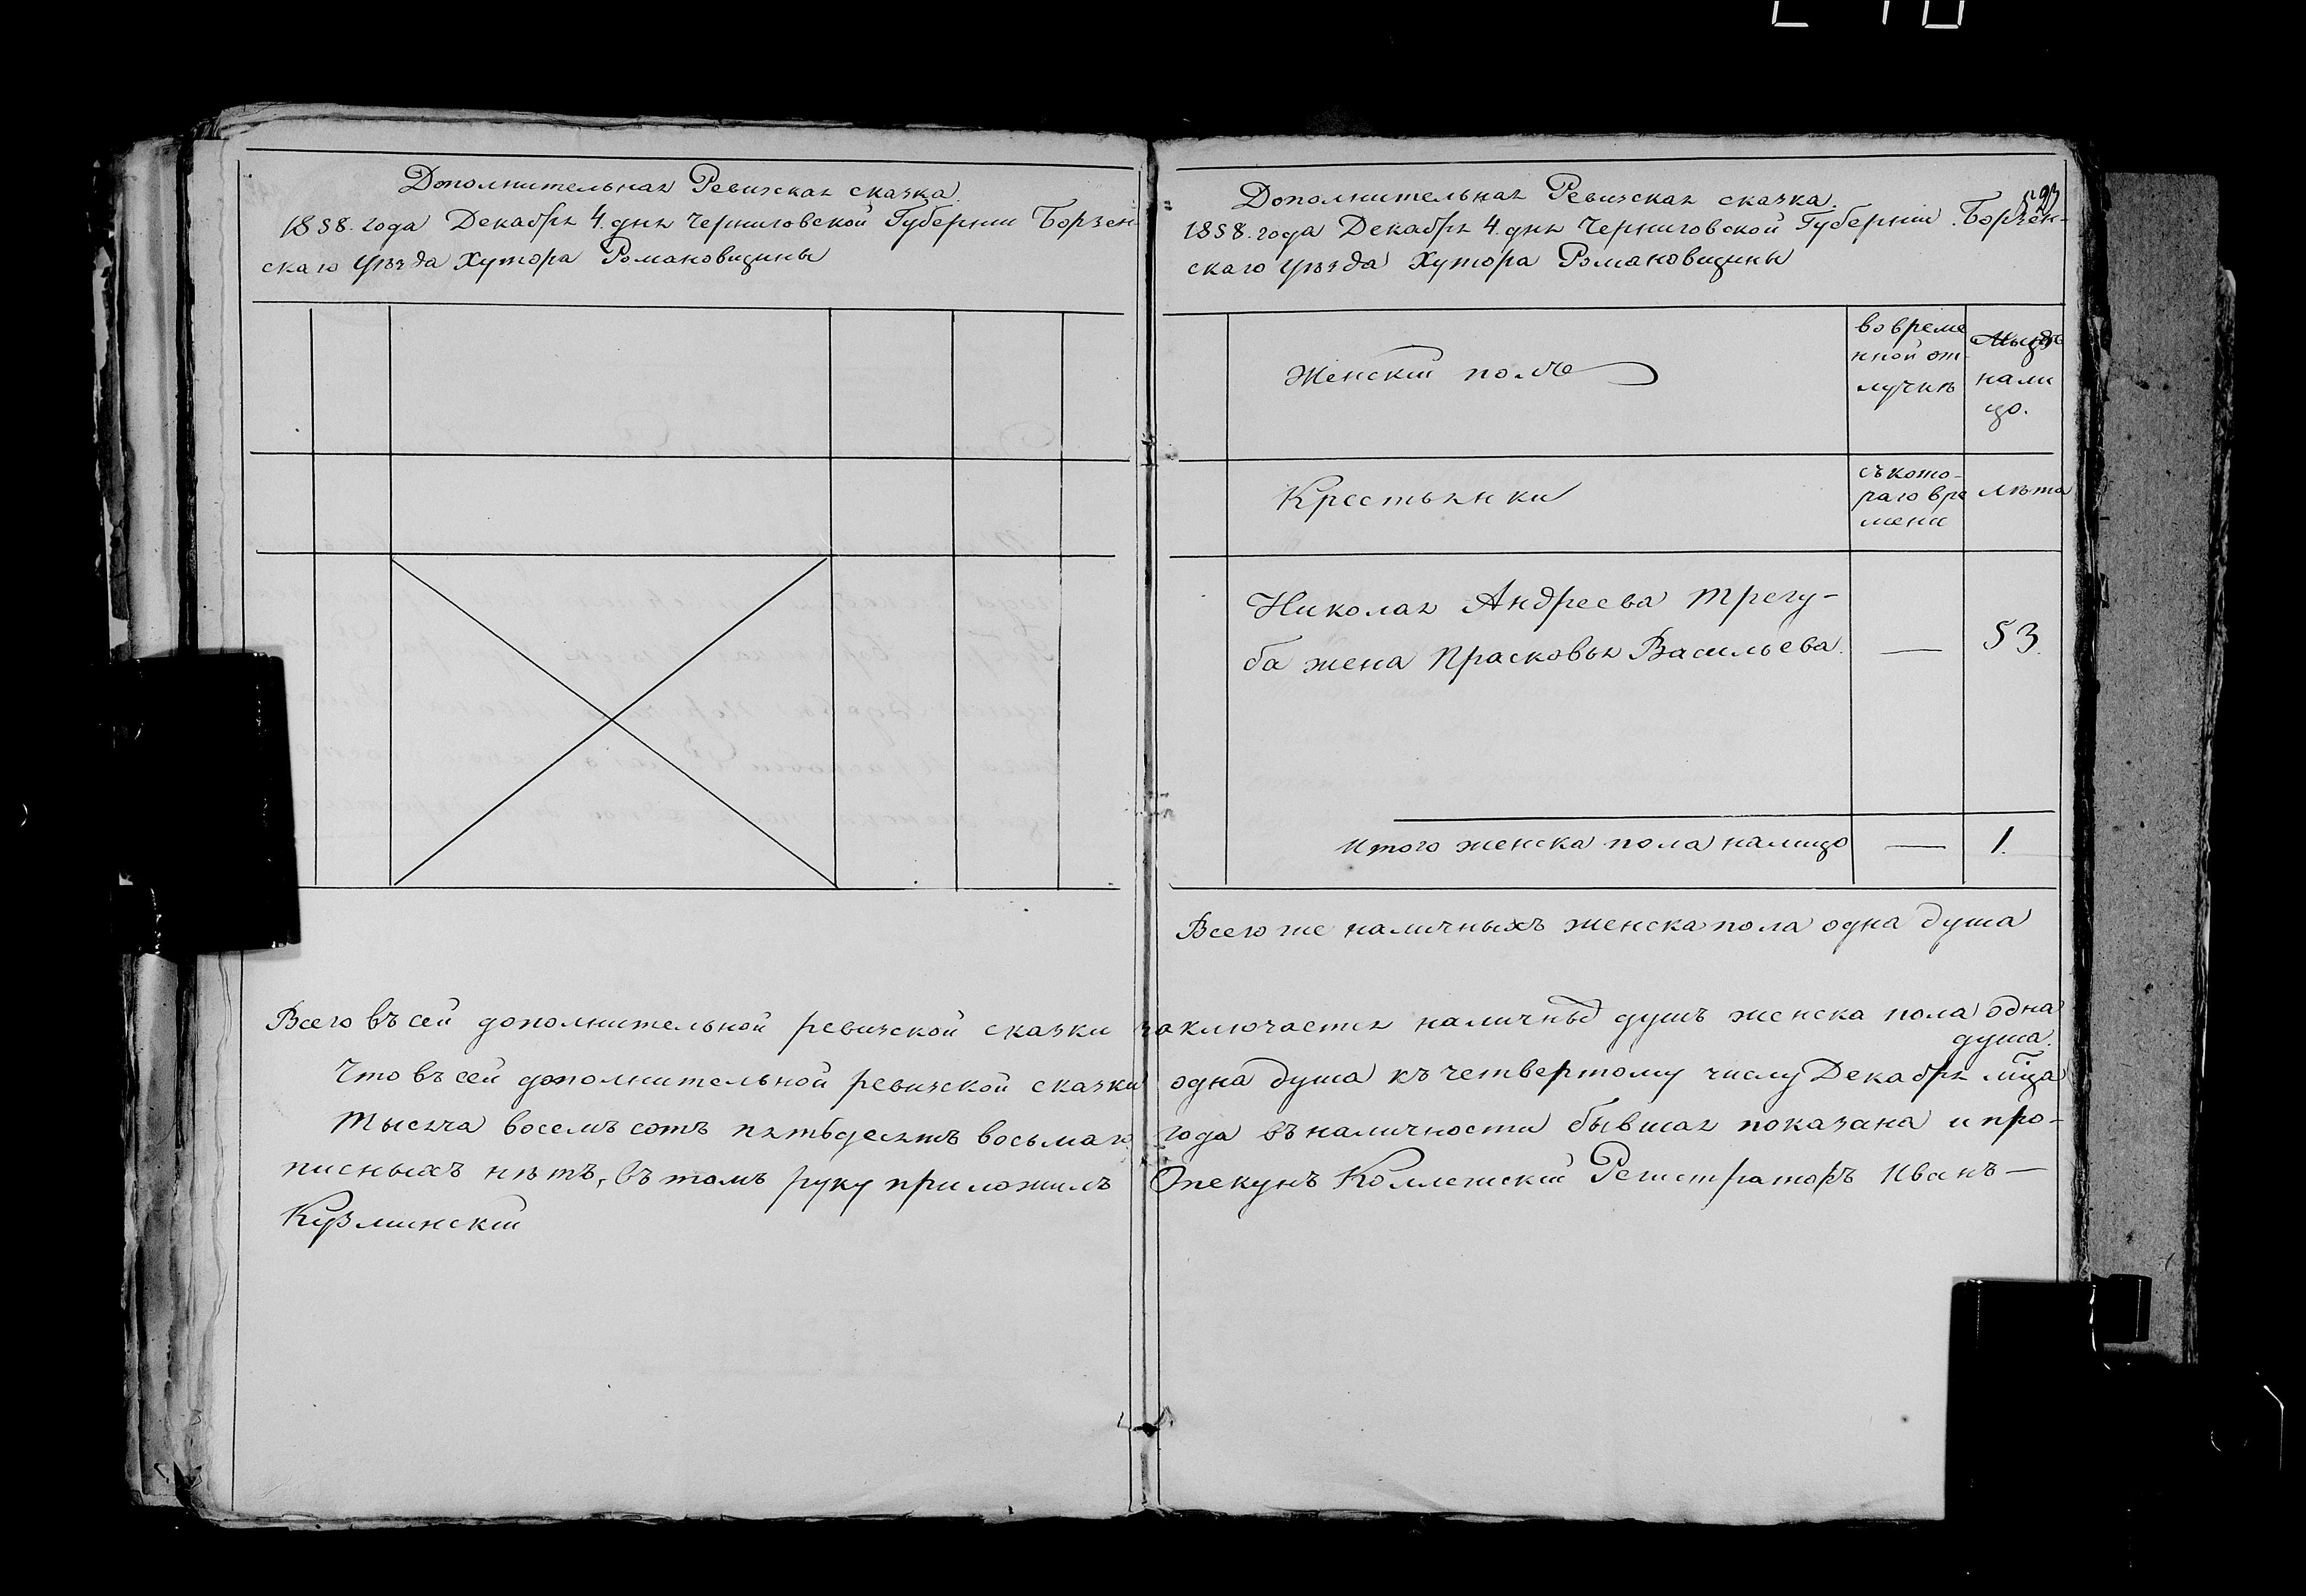 Дополнительная Ревизская сказка
1858. года Декабря 4. дня Черниговской Губернии Борзен-
скаго Уѣзда Хутора Романовщины
Всего въ сей дополнительной ревизской сказки
Что въ сей дополнительной ревизской сказки
тысяча восемъ сотъ пятьдесятъ восьмаго
писныхъ нѣтъ, въ томъ руку приложилъ
Кузминскій
Дополнительная Ревизская сказка.
1858. года Декабря 4. дня Черниговской Губерніи Борзен-
скаго Уѣзда Хутора Романовщины
Женскій полъ
во време
нной от-
лучкѣ
нали
цо.
Крестьянки
съ кото-
раго вре
мени
Лѣта
Николая Андреева Трегу-
ба жена Прасковья Васильева.
—
53.
Итого женска пола налицо
—
1.
Всего же наличныхъ женска пола одна душа
заключается наличныъ душъ женска пола одна
душа.
одна душа къ четвертому числу Декабря мца
года въ наличности бывшая показана и про-
Опекунъ Коллежскій Регистраторъ Иванъ —